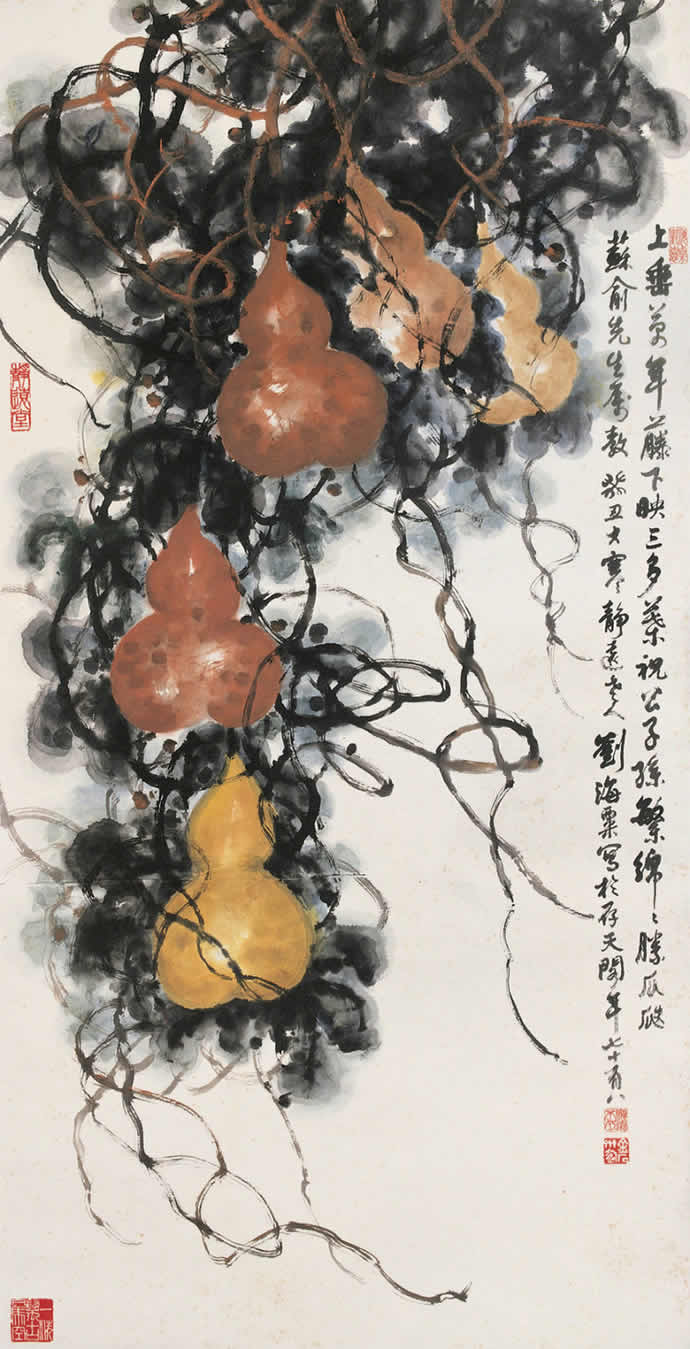 上垂萬年藤下映三多葉祝公子孫繁綿綿勝瓜瓞
蘇俞先生屬教 癸丑大寒靜遠老人劉海粟寫於存天閣年七十有八
靜遠堂